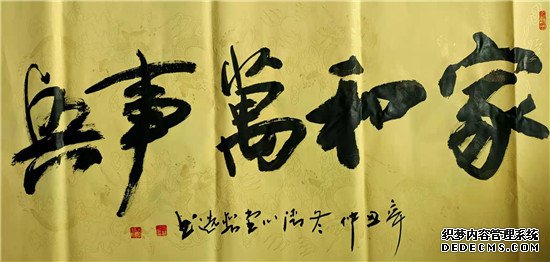 家和萬事興
辛丑仲冬
织梦内容管理系统
DEDECMS.COM